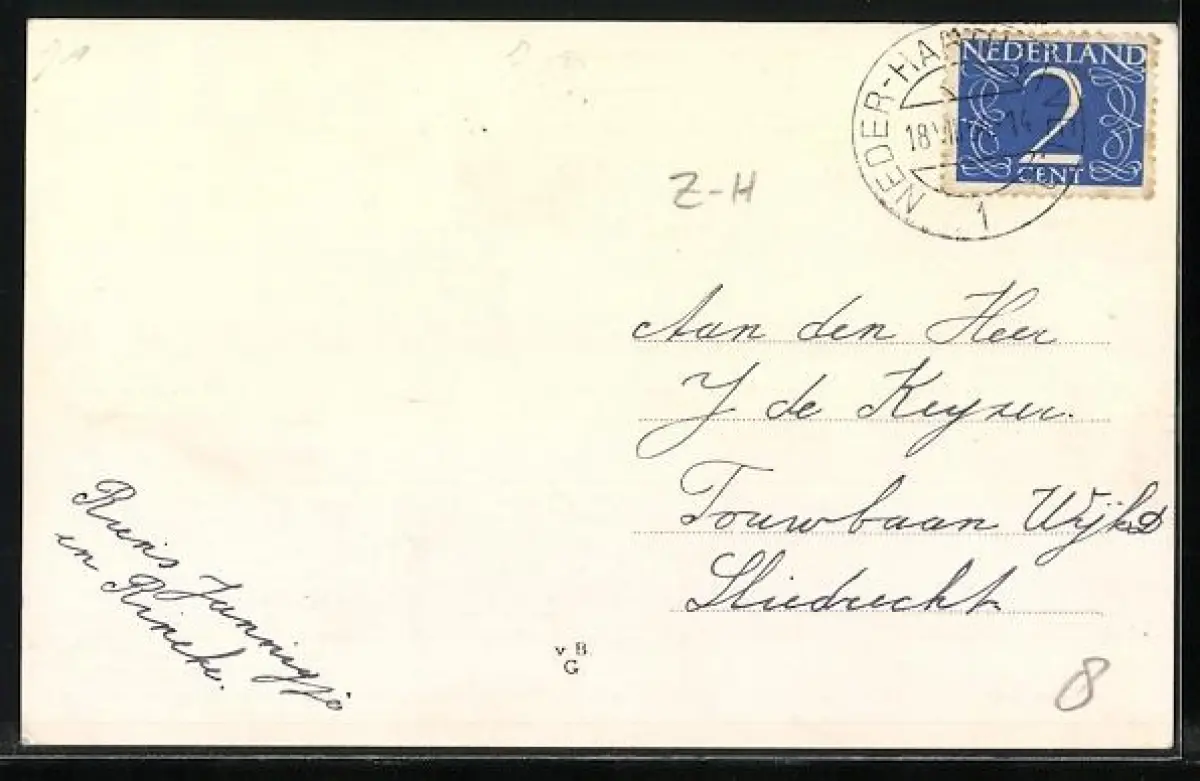 NEDERLAND
2
CENT
NEDER-HA
18
14
1
Z-H
Aan den Heer
J de Keyzer.
Touwbaan Wijk D
Sliedrecht
Reins Jannigjo
en Rineke.
v B.
G
8